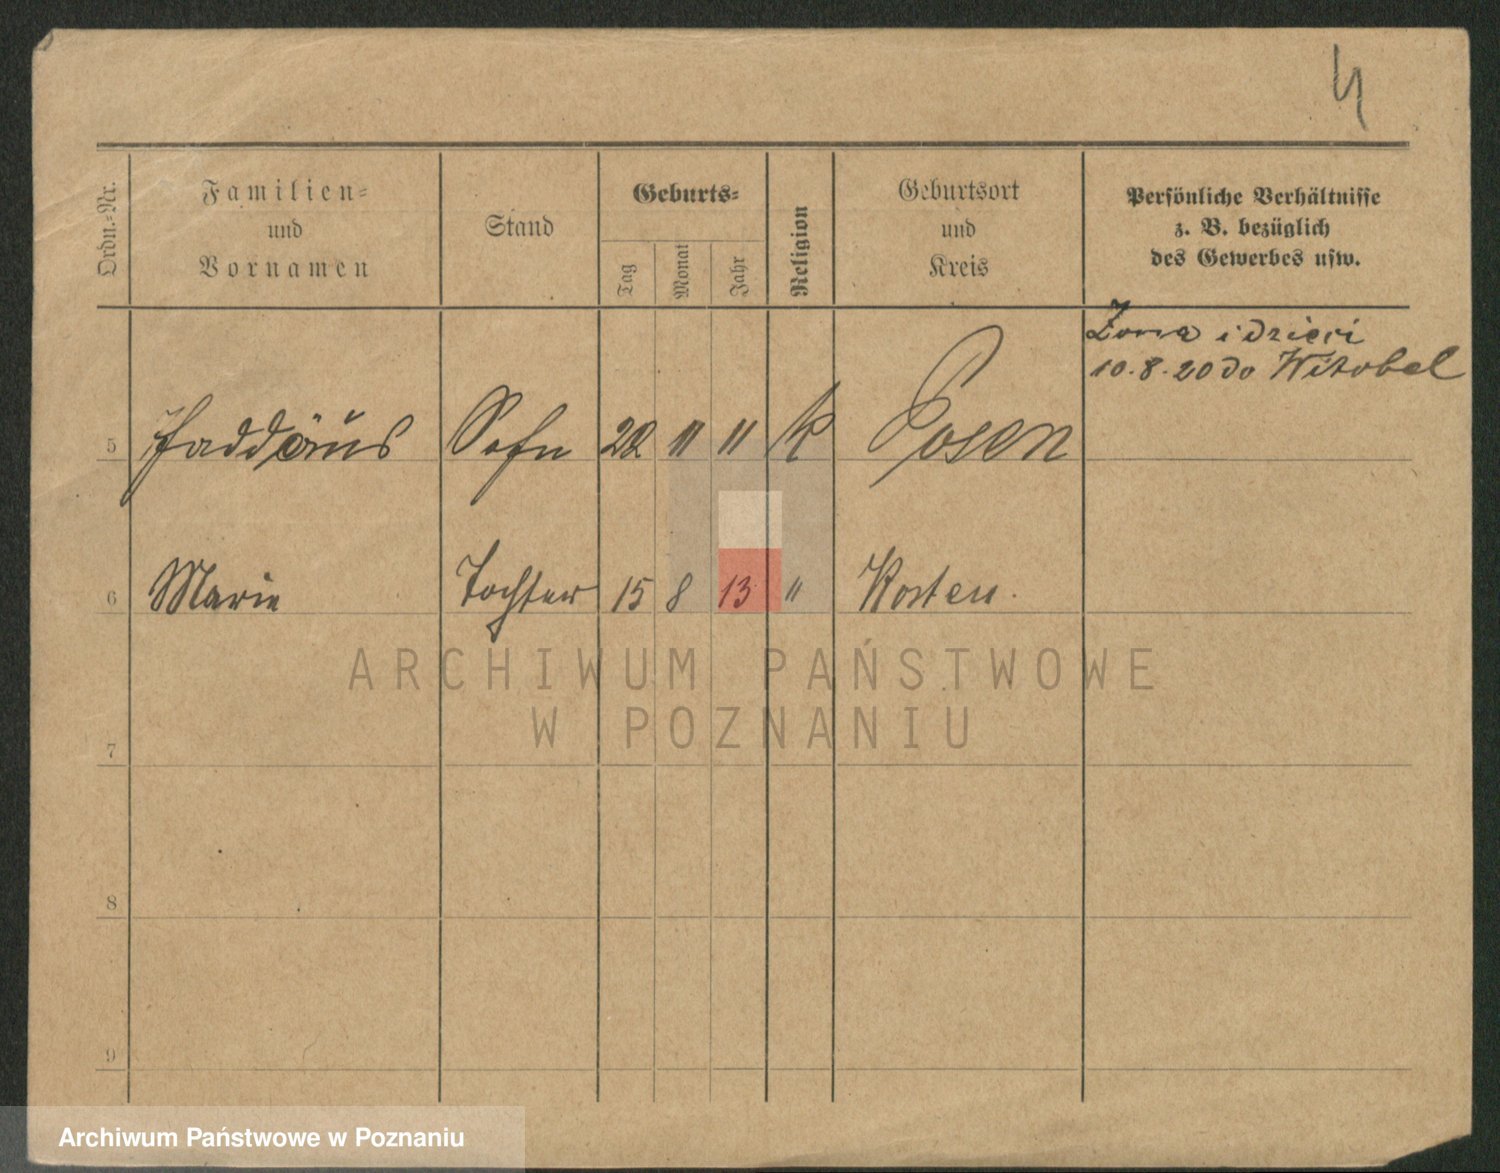 4
Ordn.-Nr.
Familien-
und
Vornamen
Stand
Geburts-
Tag
Monat
Jahr
Religion
Geburtsort
und
Kreis
Persönliche Verhältnisse
z. B. bezüglich
des Gewerbes usw.
Żona i dzieci
10.8.20 do Witobel
5 Taddäus Sohn 22 11 11 k Posen
6 Marie Tochter 15 8 13 " Kosten.
ARCHIWUM PAŃSTWOWE
W POZNANIU
7
8
9
Archiwum Państwowe w Poznaniu